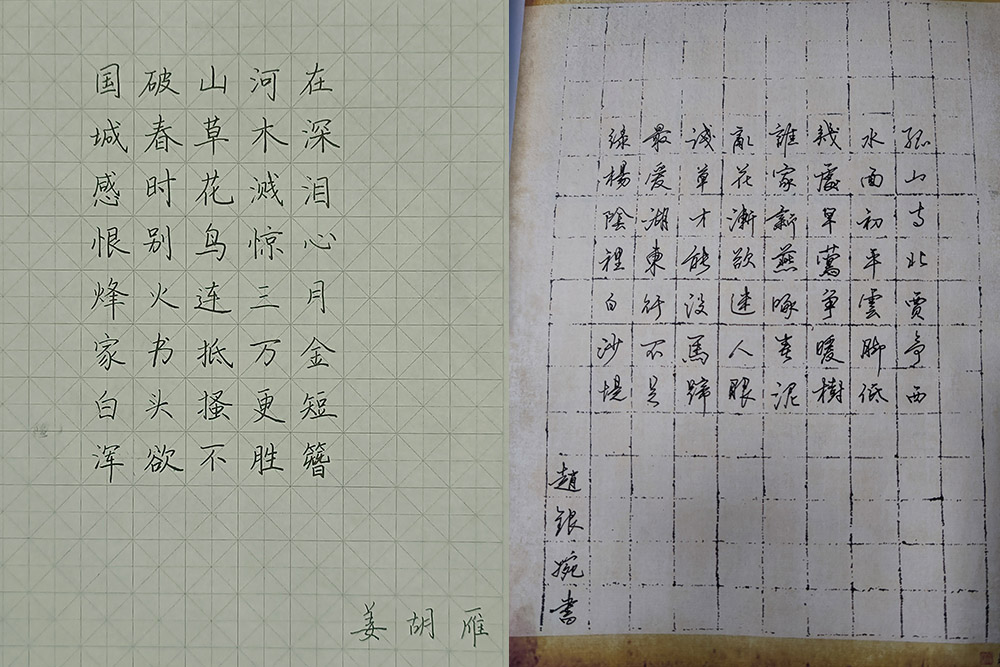 国破山河在
城春草木深
感时花溅泪
恨别鸟惊心
烽火连三月
家书抵万金
白头搔更短
浑欲不胜簪
姜胡雁
孤山寺北賈亭西
水面初平雲脚低
幾處早鶯争暖樹
誰家新燕啄春泥
亂花漸欲迷人眼
淺草才能没馬蹄
最爱湖東行不足
绿楊陰裡白沙堤
趙银婉書